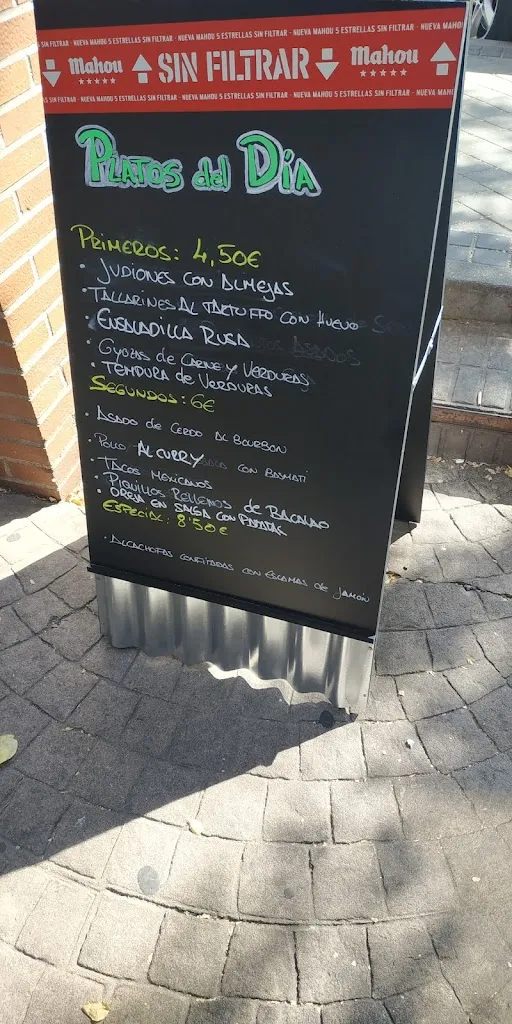 S SIN FILTRAR - NUEVA MAHOU 5 ESTRELLAS SIN FILTRAR - NUEVA MAHOU 5 ESTRELLAS SIN FILTRAR - NUEVA MAHOU
Mahou SIN FILTRAR Mahou
S SIN FILTRAR - NUEVA MAHOU 5 ESTRELLAS SIN FILTRAR - NUEVA MAHOU 5 ESTRELLAS SIN FILTRAR - NUEVA MAH
PLATOS del DÍA
PRIMEROS: 4,50€
· JUDIONES CON ALMEJAS
· TALLARINES AL TARTUFFO CON HUEVO
· ENSALADILLA RUSA
· GYOZAS de CARNE Y VERDURAS
· TEMPURA de VERDURAS
SEGUNDOS: 6€
· ASADO de CERDO AL BOURBON
· POLLO AL CURRY CON BASMATI
· TACOS MEXICANOS
· PIQUILLOS RELLENOS de BACALAO
· OREJA EN SALSA CON PATATAS
ESPECIAL: 8'50€
· ALCACHOFAS CONFITADAS CON ESCAMAS DE JAMON